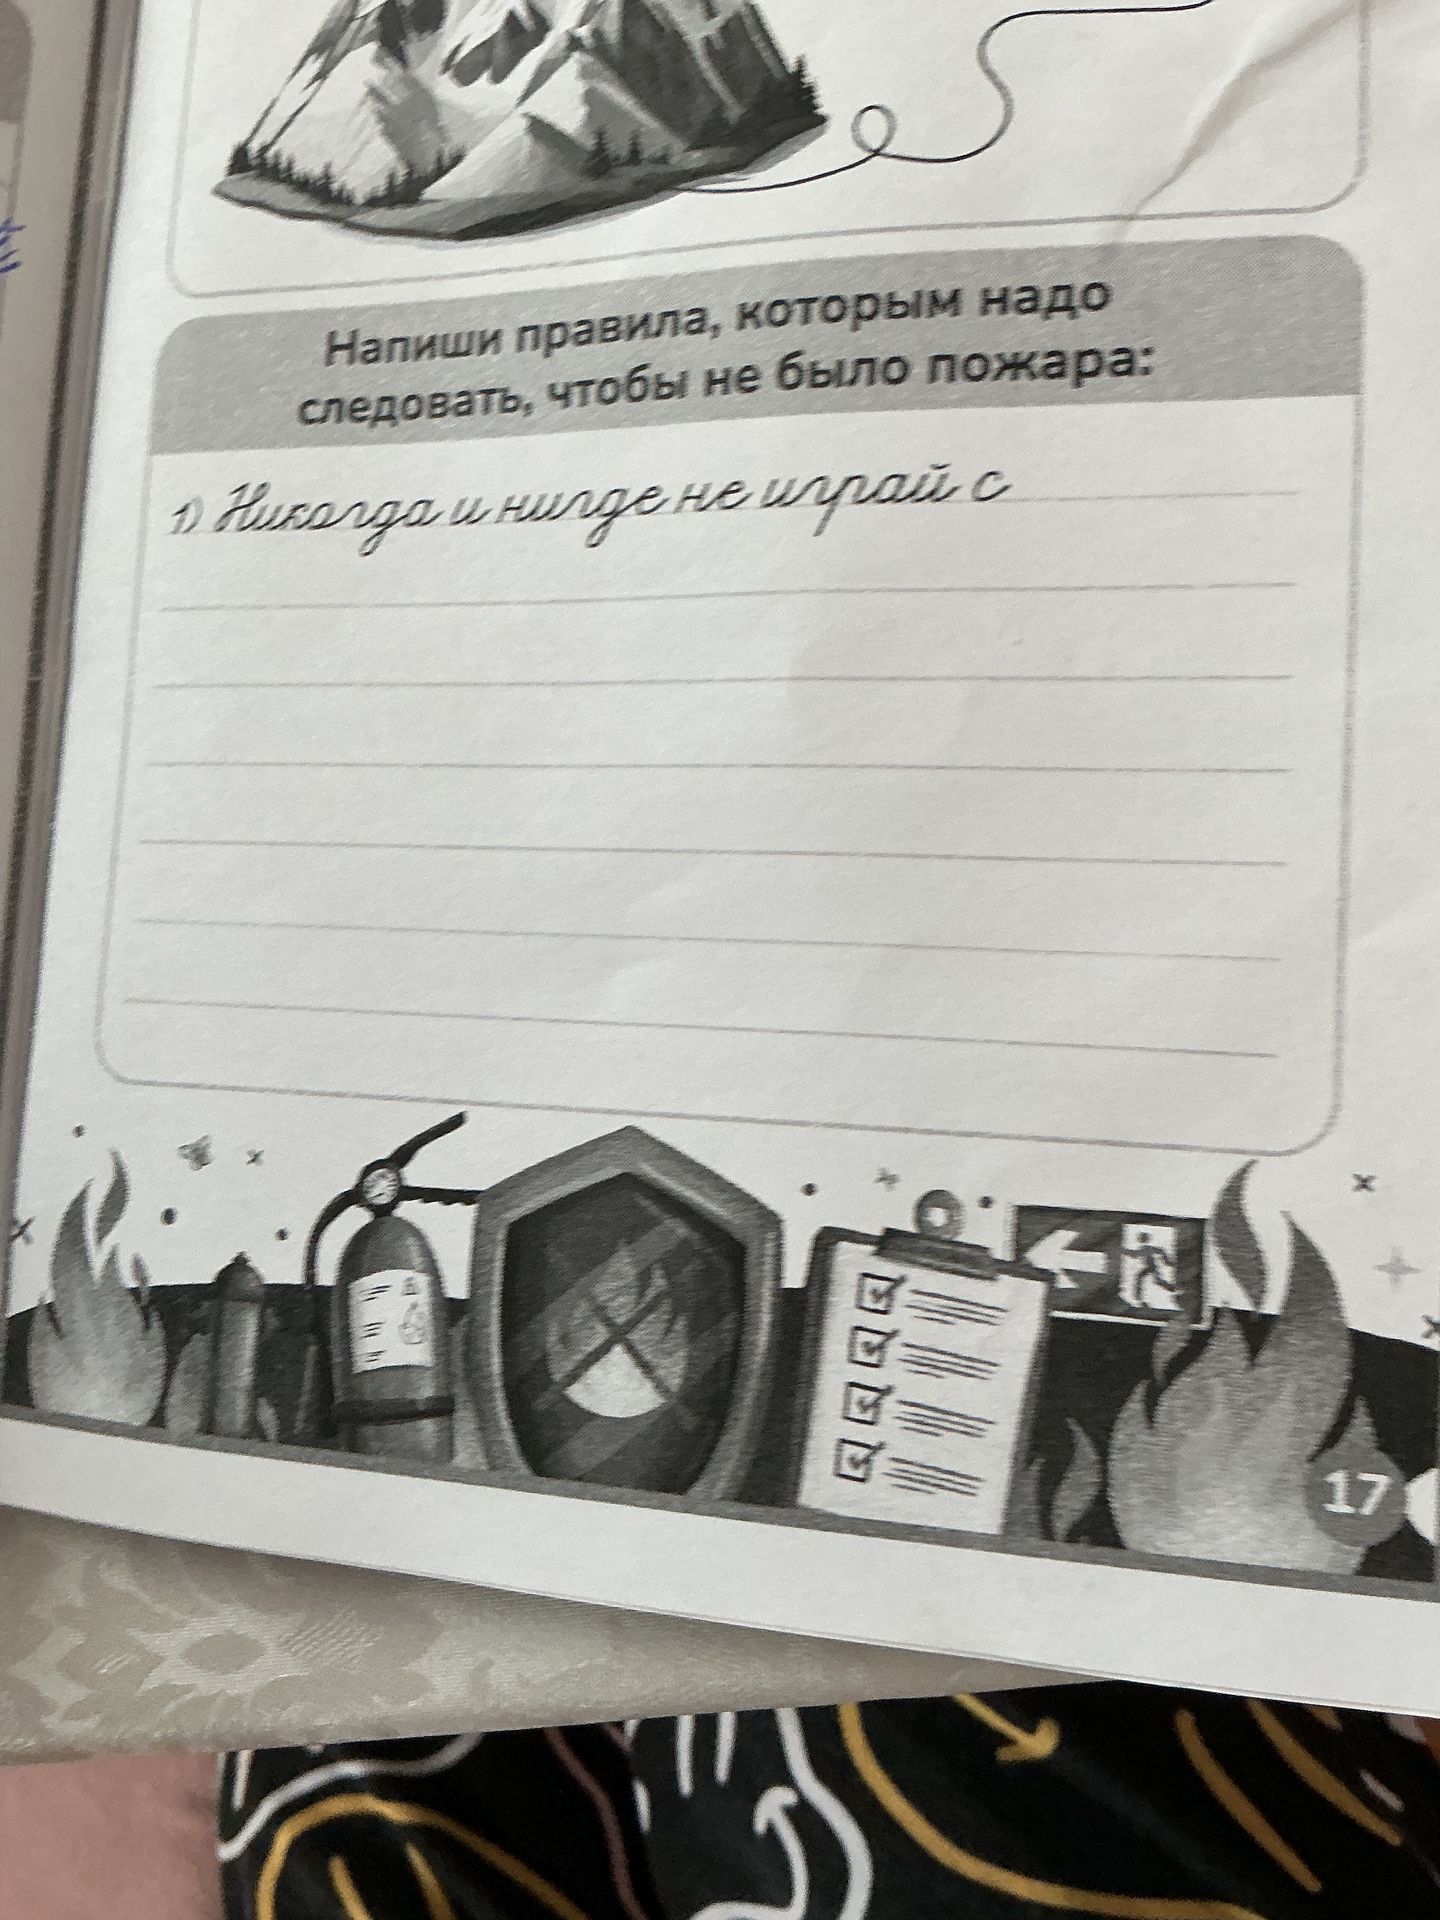 Напиши правила, которым надо
следовать, чтобы не было пожара:
1) Никогда и нигде не играй с
17